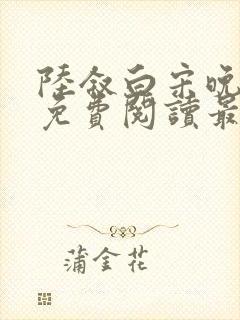 陸敘白宋晚
免費閱讀最
蒲金花